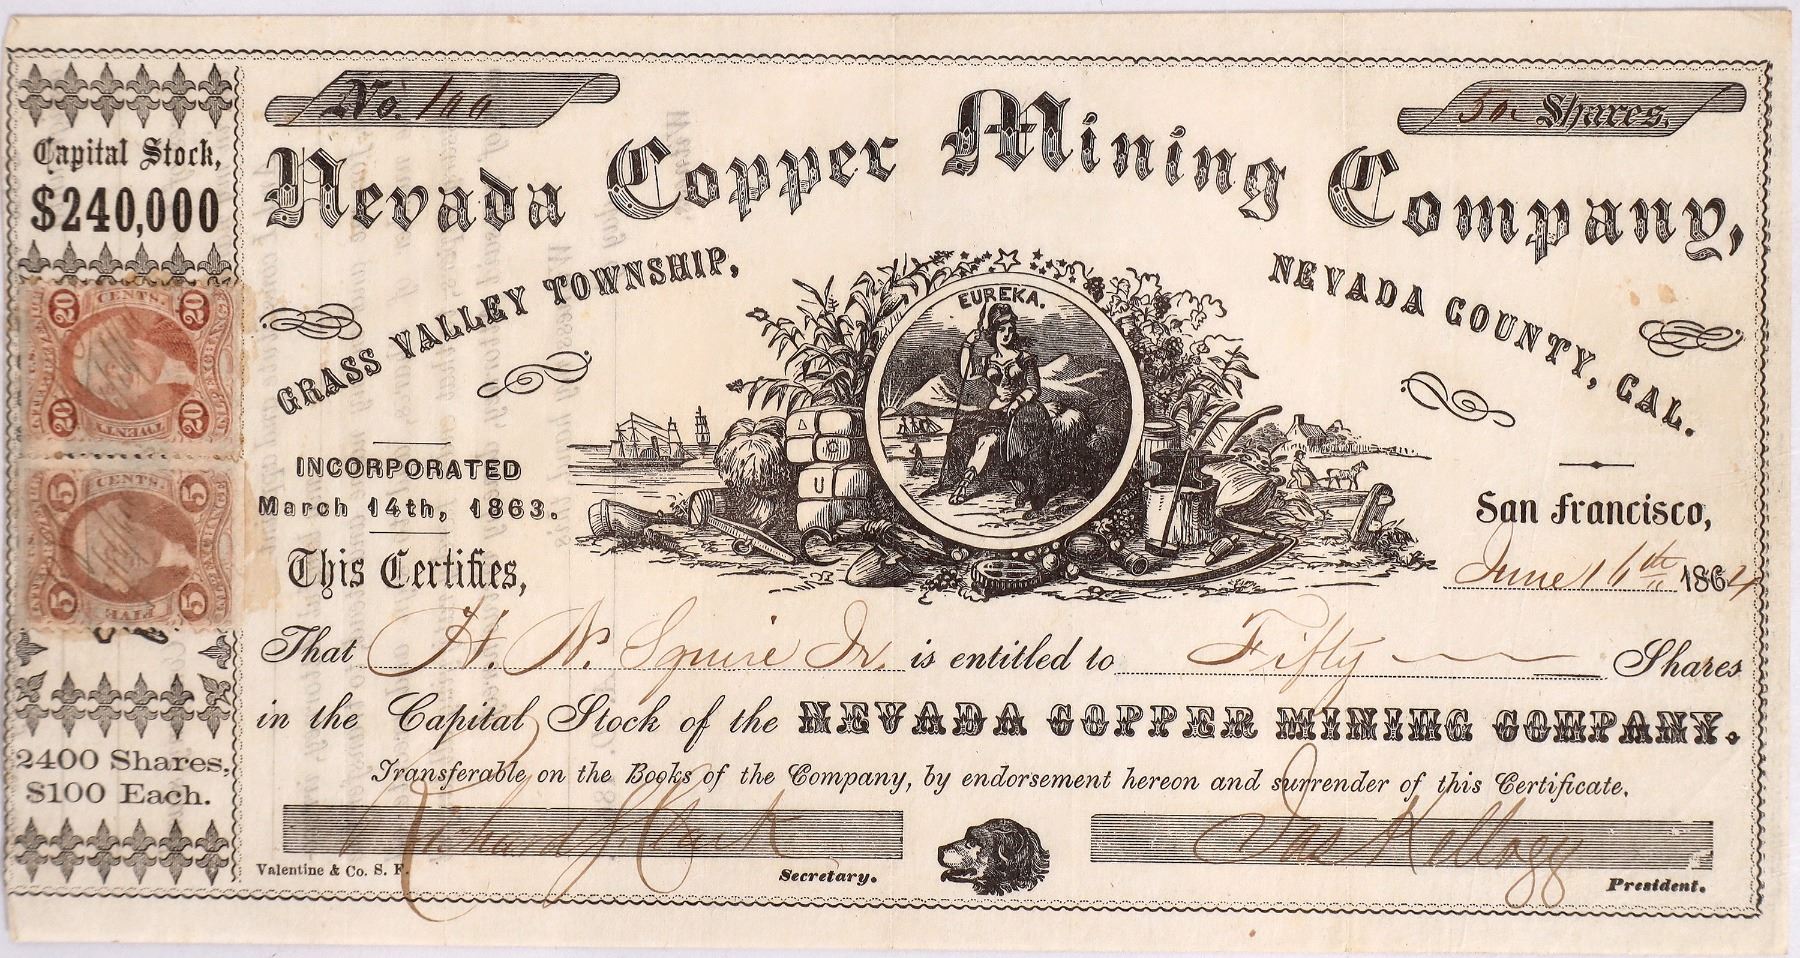 No. 100
50. Shares.
Capital Stock,
$240,000
Nevada Copper Mining Company,
GRASS VALLEY TOWNSHIP,
NEVADA COUNTY, CAL.
EUREKA.
20 CENTS. 20
20 TWENTY 20
5 CENTS 5
5 FIVE 5
INCORPORATED
March 14th, 1863.
San Francisco,
June 16th 1864
This Certifies,
That H. N. Squire Jr. is entitled to Fifty Shares
in the Capital Stock of the NEVADA COPPER MINING COMPANY.
2400 Shares,
$100 Each.
Transferable on the Books of the Company, by endorsement hereon and surrender of this Certificate.
Richard J. Clark
Jas Kellogg
Valentine & Co. S. F.
Secretary.
President.